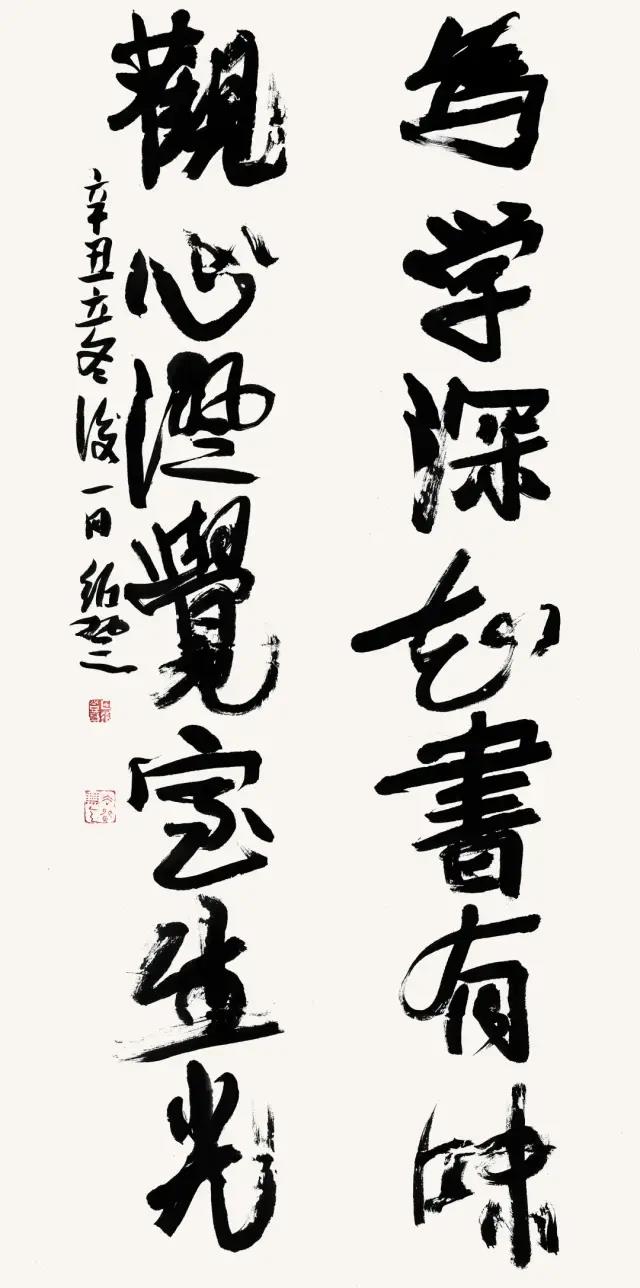 為学深知書有味
觀心澄覺室生光
辛丑立冬後一日紹